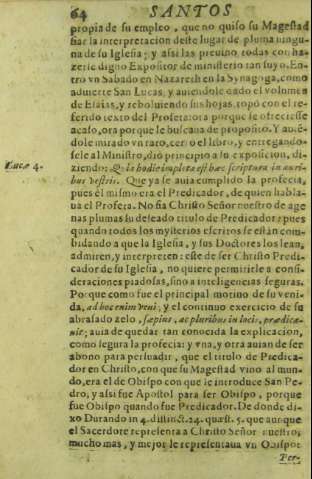 64 SANTOS
propia de su empleo, que no quiso su Magestad
fiar la interpretacion deste lugar de pluma ningu-
na de su Iglesia; y assi las previno todas con ha-
zerse digno Expositor de ministerio tan suyo. En-
trò vn Sabado en Nazareth en la Synagoga, como
aduierte San Lucas, y auiendole dado el volumen
de Esaias, y reboluiendo sus hojas, topò con el re-
ferido texto del Profeta: ora porque le ofreciesse
acaso, ora porque le buscaua de proposito. Y auiē-
dole mirado vn rato, cerrò el libro, y entregando-
sele al Ministro, diò principio a su exposicion, di-
Lucæ 4.
ziendo: Quia hodie impleta est hæc scriptura in auri-
bus vestris. Que yà se auia cumplido la profecia,
pues èl mismo era el Predicador, de quien habla-
ua el Profeta. No fia Christo Señor nuestro de age
nas plumas su deseado titulo de Predicador; pues
quando todos los mysterios escritos se estàn com-
bidando a que la Iglesia, y sus Doctores los lean,
admiren, y interpreten: este de ser Christo Predi-
cador de su Iglesia, no quiere permitirle a consi-
deraciones piadosas, sino a inteligencias seguras.
Porque como fue el principal motiuo de su veni-
da, ad hoc enim veni; y el continuo exercicio de su
abrasado zelo, sæpius, ac pluribus in locis, prædica-
uit; auia de quedar tan conocida la explicacion,
como segura la profecia: y vna, y otra auian de ser
abono para persuadir, que el titulo de Predica-
dor en Christo, con que su Magestad vino al mun-
do, era el de Obispo con que le introduce San Pe-
dro, y assi fue Apostol para ser Obispo, porque
fue Obispo quando fue Predicador. De donde di-
xo Durando in 4. distinct. 24. quæst. 5. que aunque
el Sacerdote representa a Christo Señor nuestro,
mucho mas, y mejor le representaua vn Obispo:
Per-